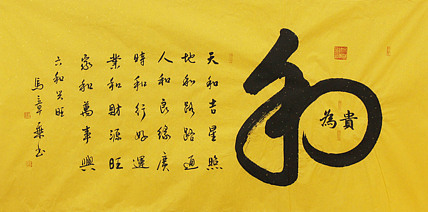 和
為貴
天和吉星照
地和路路通
人和良缘廣
時和行好運
業和財源旺
家和萬事興
六和兴旺
馬章乘书